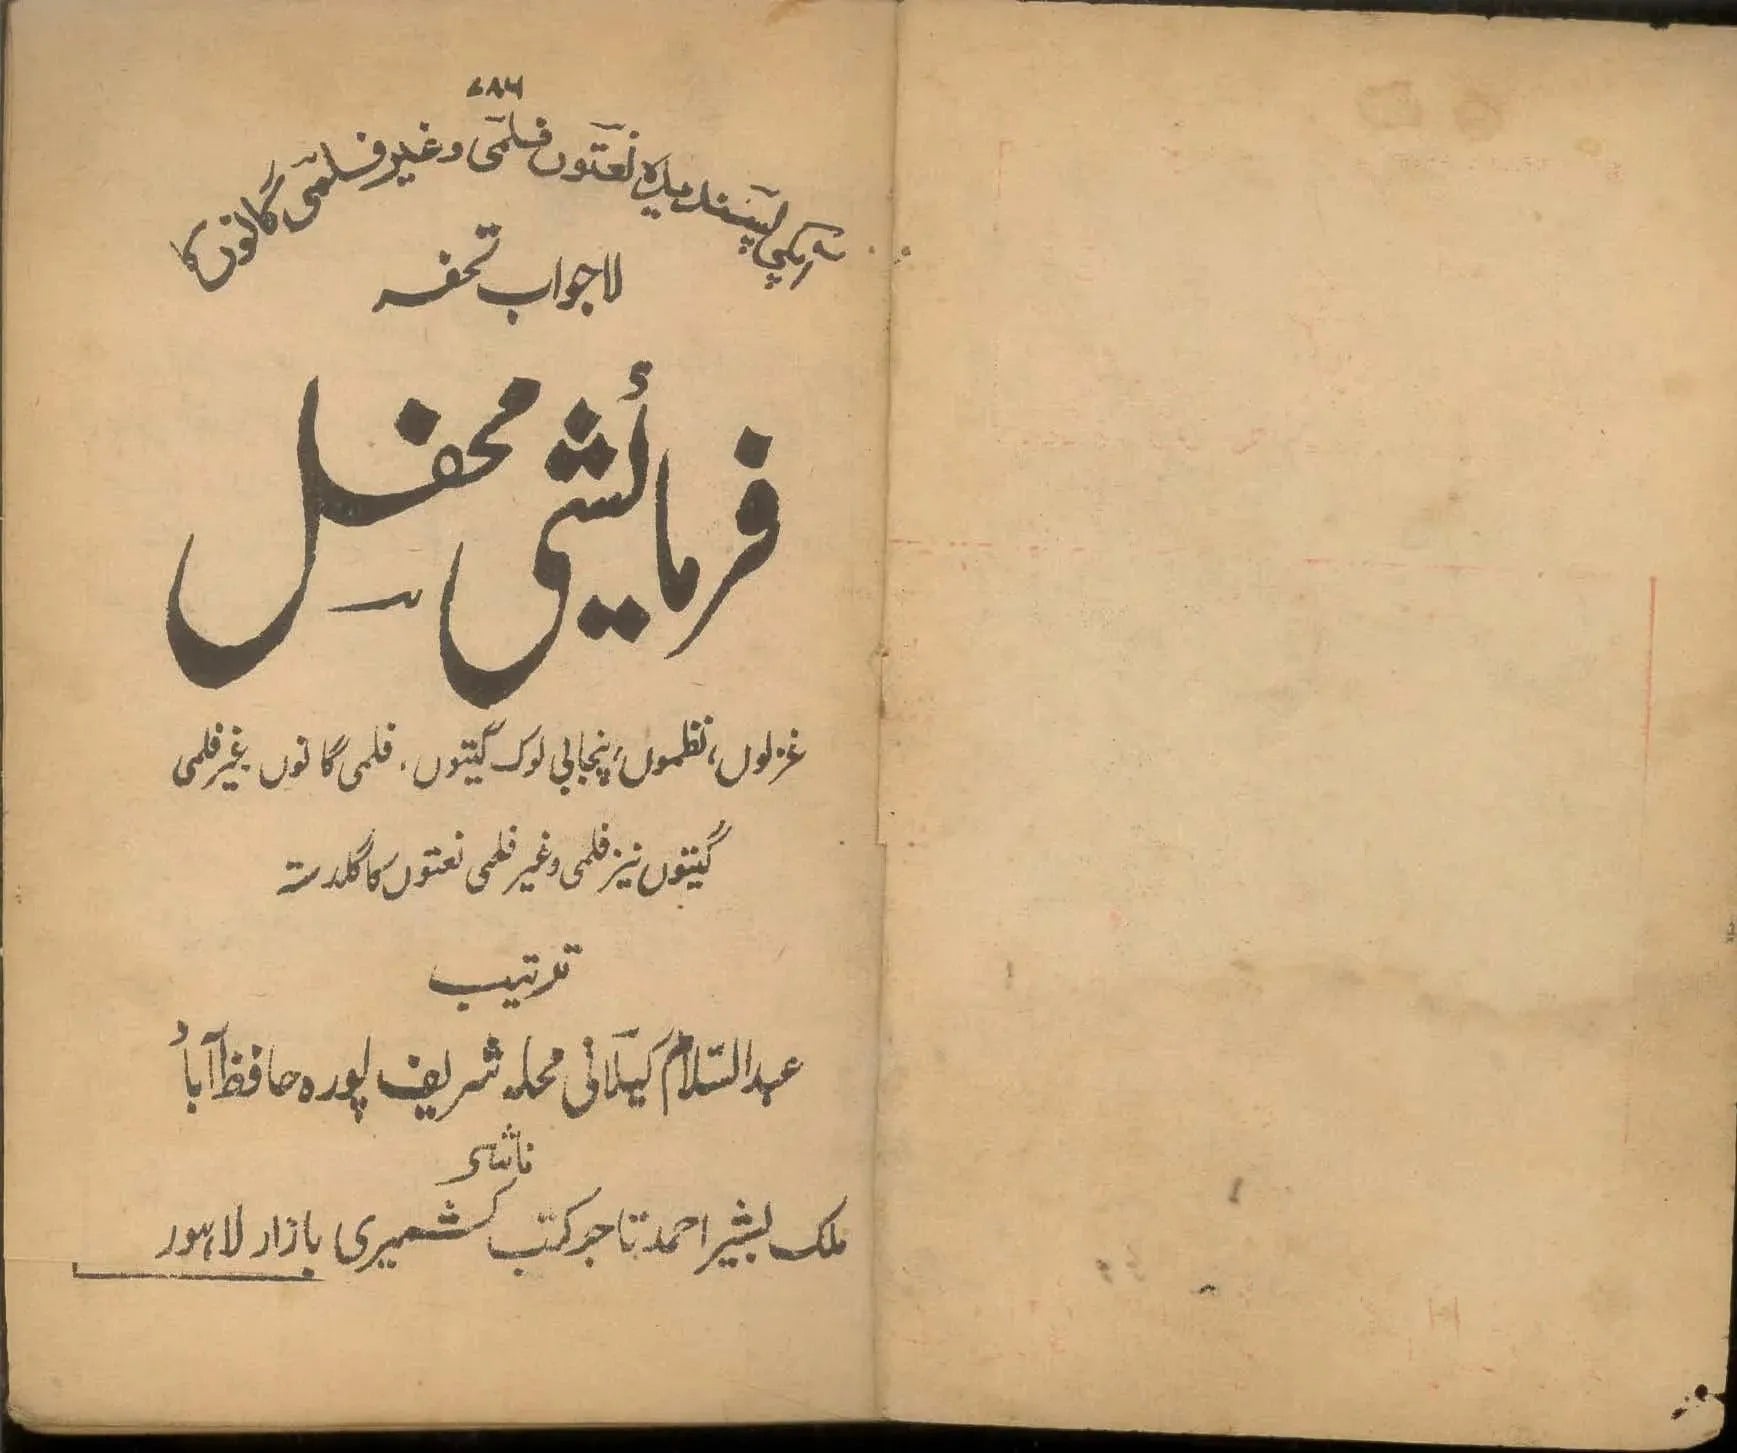 ۷۸۶
آپکی پسندیدہ نعتوں فلمی و غیر فلمی گانوں کا
لاجواب تحفہ
فرمائشی محفل
غزلوں، نظموں، پنجابی لوک گیتوں، فلمی گانوں غیر فلمی
گیتوں نیز فلمی و غیر فلمی نعتوں کا گلدستہ
ترتیب
عبدالسّلام گیلانی محلہ شریف پورہ حافظ آباد
ناشر
ملک بشیر احمد تاجر کتب کشمیری بازار لاہور